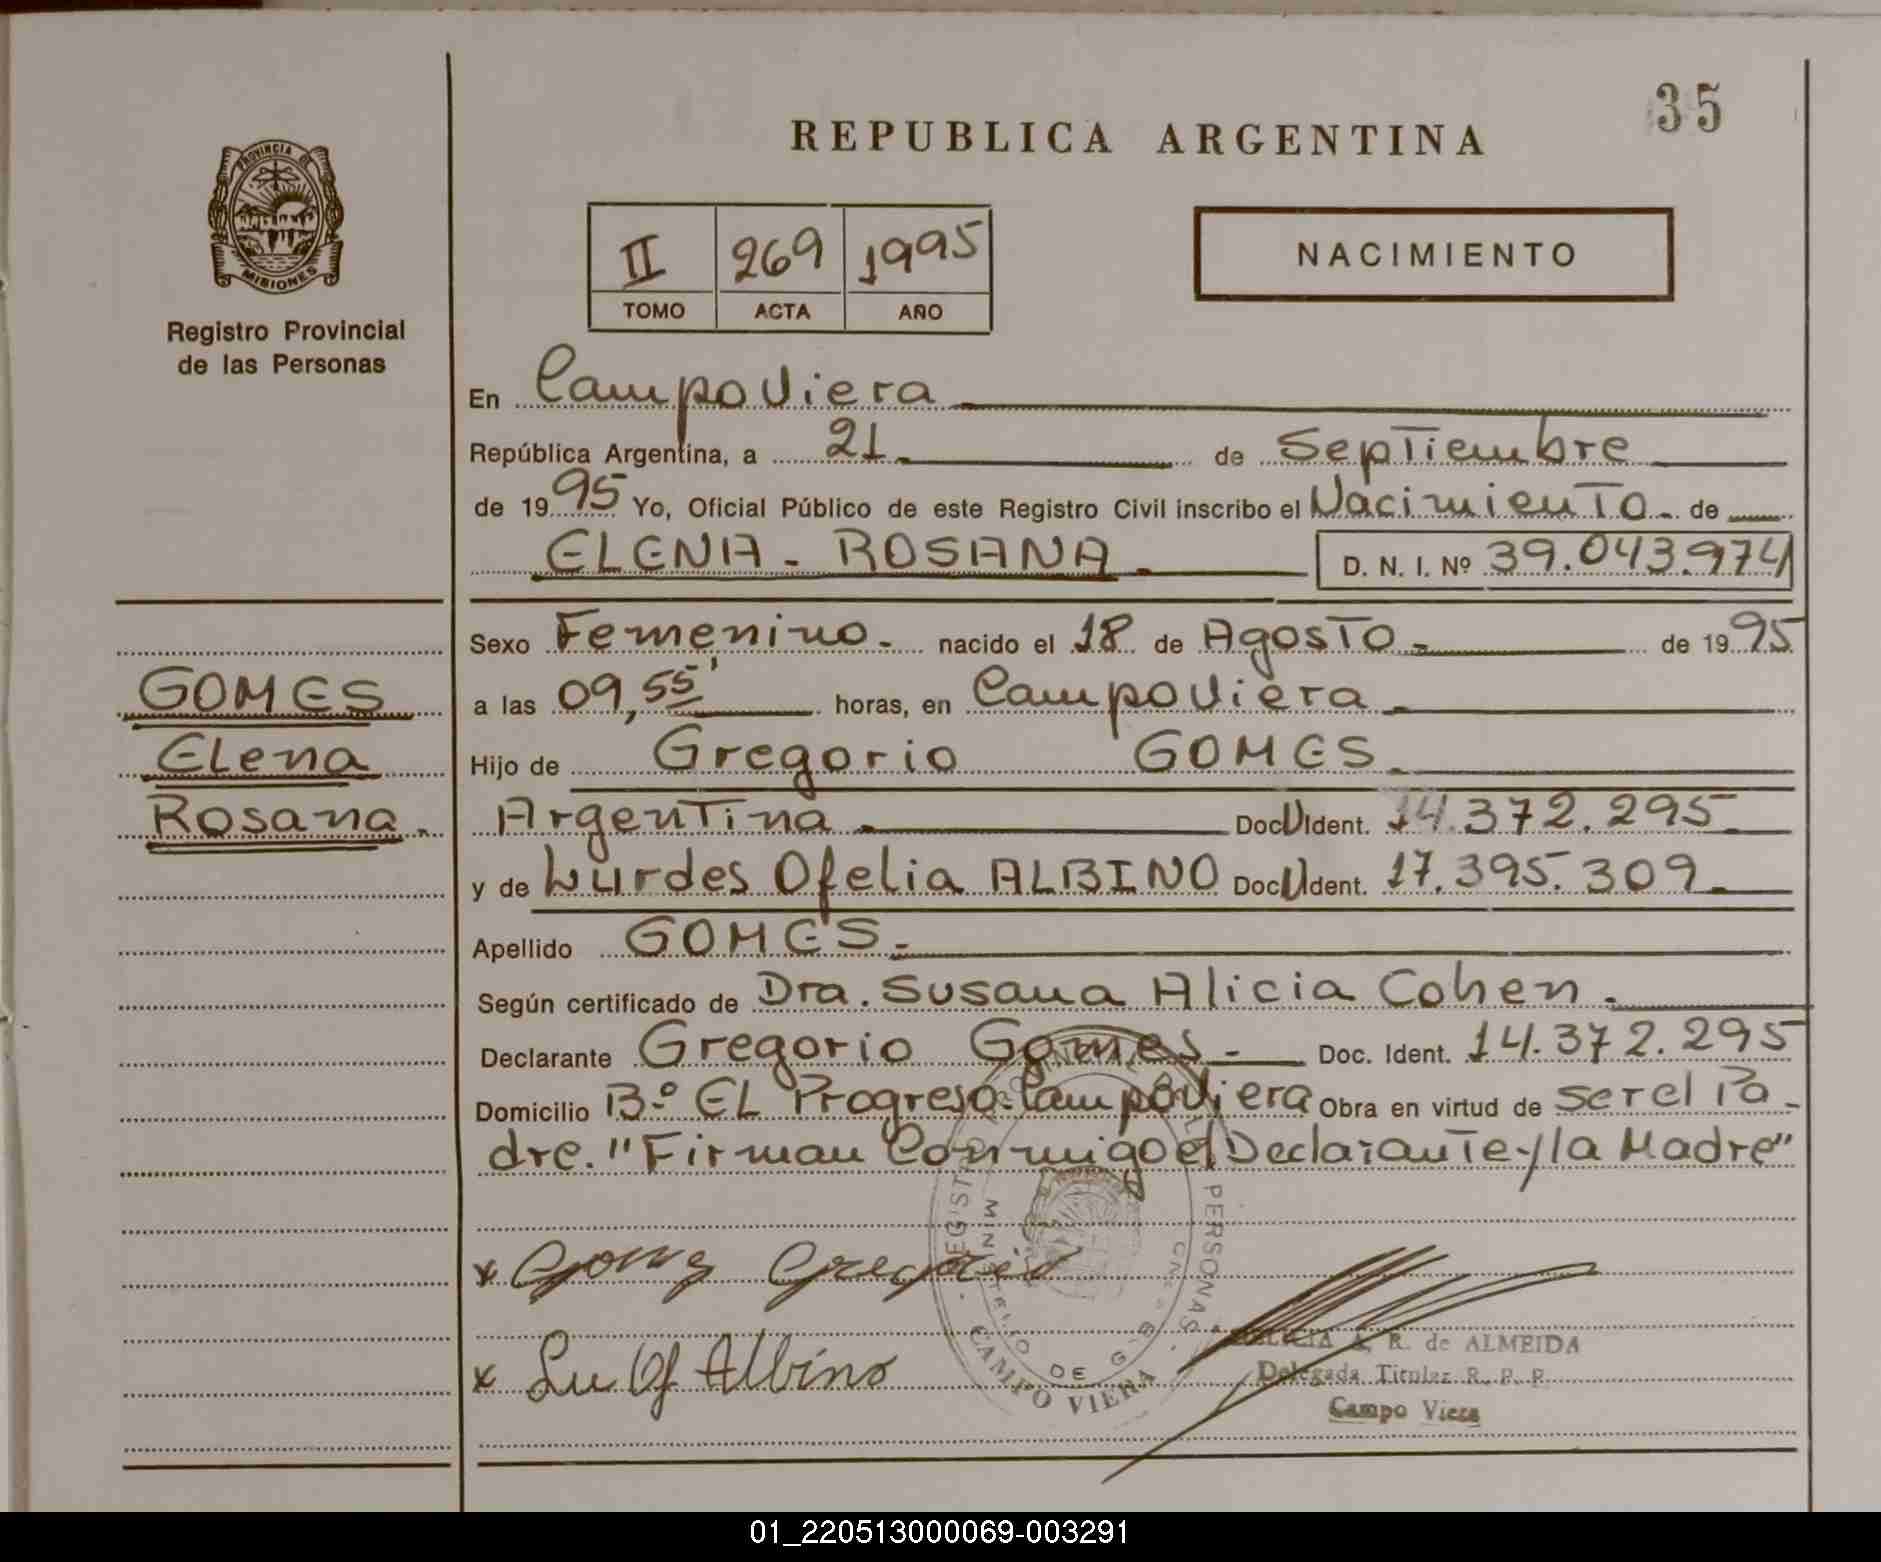 35
REPUBLICA ARGENTINA
PROVINCIA DE
MISIONES
Registro Provincial
de las Personas
II 269 1995
TOMO ACTA AÑO
NACIMIENTO
En Campo Viera
República Argentina, a 21 de Septiembre
de 1995 Yo, Oficial Público de este Registro Civil inscribo el Nacimiento de
ELENA - ROSANA D. N. I. Nº 39.043.974
Sexo Femenino. nacido el 18 de Agosto de 1995
a las 09,55' horas, en Campo Viera
Hijo de Gregorio GOMES
Argentina Doc U Ident. 14.372.295
y de Lurdes Ofelia ALBINO Doc U Ident. 17.395.309
Apellido GOMES.
Según certificado de Dra. Susana Alicia Cohen.
Declarante Gregorio Gomes Doc. Ident. 14.372.295
Domicilio Bº EL Progreso-Campo Viera Obra en virtud de ser el Pa-
dre. "Firman Conmigo el Declarante y la Madre"
GOMES
Elena
Rosana.
x Gomes Gregorio
x Lu Of Albino
PERSONAS
MINISTERIO DE G
CAMPO VIERA
A. R. de ALMEIDA
Delegada Titular R. P. P.
Campo Viera
01_220513000069-003291